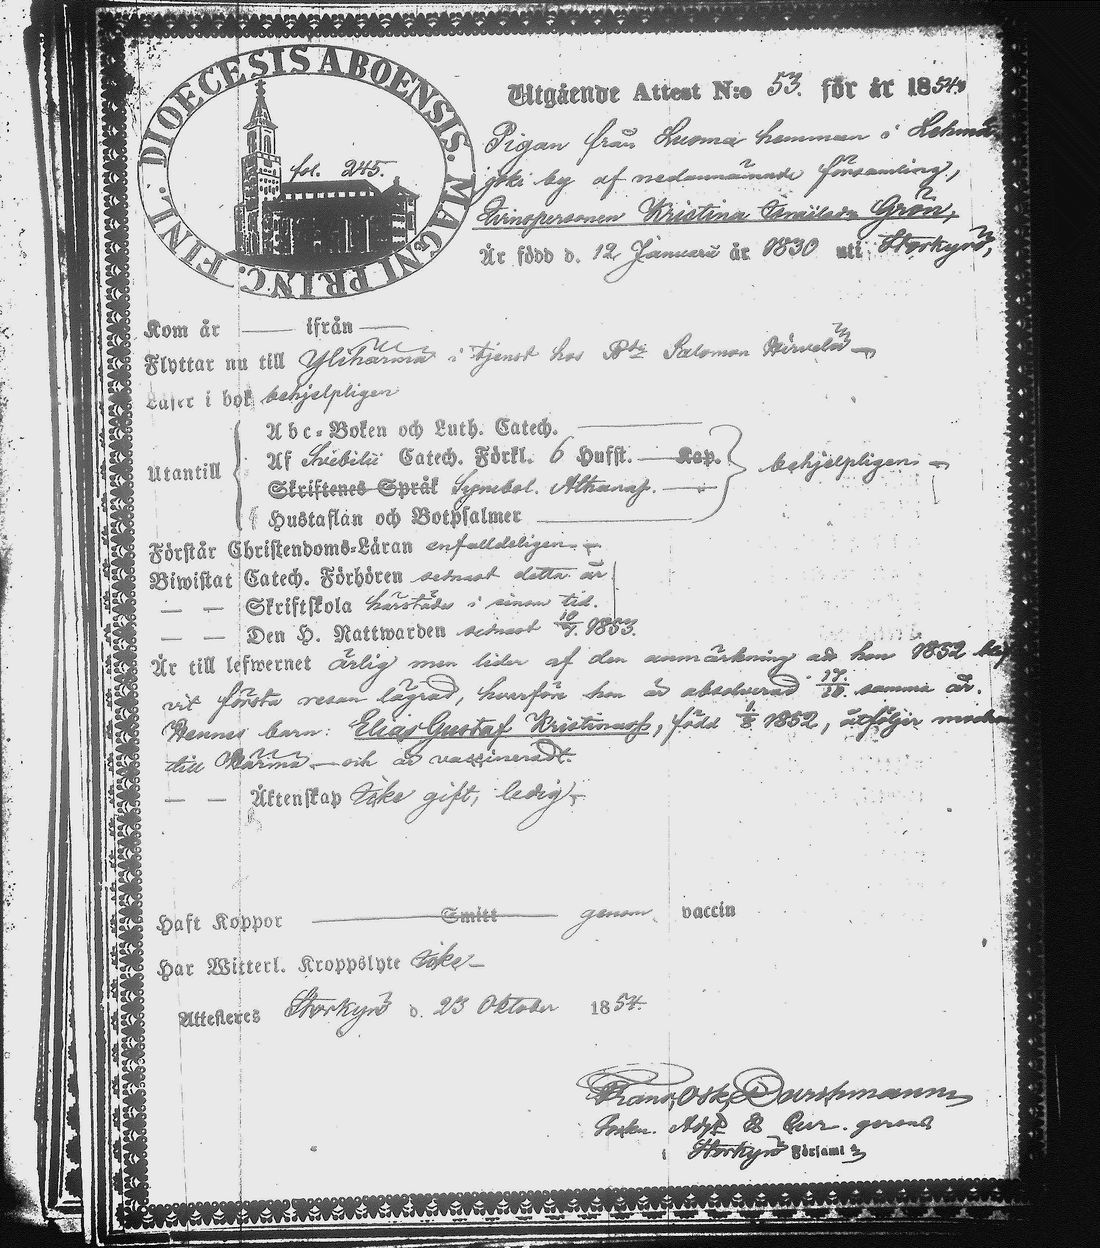 DIOECESIS ABOENSIS. MAGNI PRINC. FINL.
fol. 245.
Utgående Attest N:o 53. för år 1854.
Pigan från Luoma hemman i Lehmä-
joki by af nedannämnde församling,
Qvinspersonen Kristina Israelsdr Grön,
Är född d. 12 Januari år 1830 uti Storkyrö,
Kom år — ifrån —
Flyttar nu till Ylihärmä i tjenst hos Salomon Hirvelä
Läser i bok behjelpligen
Utantill
Abc-Boken och Luth. Catech.
Af Svebilii Catech. Förkl. 6 Hufst. — Kap.
Skriftenes Språk Symbol. Athanas. —
Hustaflan och Botpsalmer
behjelpligen
Förstår Christendoms-Läran enfalldeligen
Biwistat Catech. Förhören senast detta år
— — Skriftskola härstädes i sinom tid.
— — Den H. Nattwarden senast 1853.
Är till lefwernet ärlig men lider af den anmärkning att hon 1852 blef-
vit första resan lägrad, hvarföre hon är absolverad samma år.
Hennes barn: Elias Gustaf Kristinass, född 1/8 1852, åtföljer modren
till Härmä — och är vaccineradt.
— — Äktenskap icke gift, ledig
Haft Koppor — Smitt — genom vaccin
Har Witterl. Kroppslyte icke
Attesteres Storkyrö d. 23 Oktober 1854.
Frans Osk. Durchmann
Adj. Cur. gerens
Storkyrö Församl